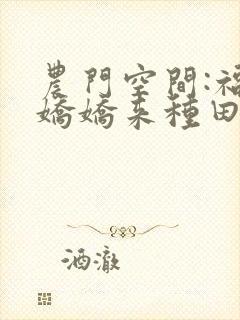 農門空間:福
嬌嬌來種田
酒澈